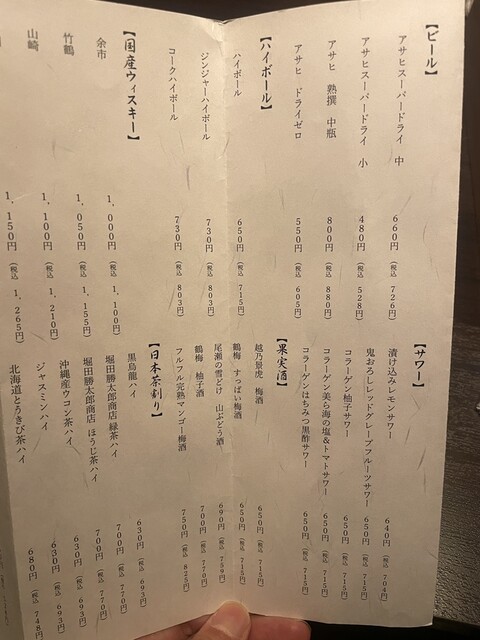 【ビール】
アサヒスーパードライ 中 660円（税込 726円）
アサヒスーパードライ 小 480円（税込 528円）
アサヒ 熟撰 中瓶 800円（税込 880円）
アサヒ ドライゼロ 550円（税込 605円）
【ハイボール】
ハイボール 650円（税込 715円）
ジンジャーハイボール 730円（税込 803円）
コークハイボール 730円（税込 803円）
【国産ウィスキー】
余市 1,000円（税込 1,100円）
竹鶴 1,050円（税込 1,155円）
山崎 1,100円（税込 1,210円）
1,150円（税込 1,265円）
【サワー】
漬け込みレモンサワー 640円（税込 704円）
鬼おろしレッドグレープフルーツサワー 650円（税込 715円）
コラーゲン柚子サワー 650円（税込 715円）
コラーゲン美ら海の塩&トマトサワー 650円（税込 715円）
コラーゲンはちみつ黒酢サワー 650円（税込 715円）
【果実酒】
越乃景虎 梅酒 650円（税込 715円）
鶴梅 すっぱい梅酒 650円（税込 715円）
尾瀬の雪どけ 山ぶどう酒 690円（税込 759円）
鶴梅 柚子酒 700円（税込 770円）
フルフル完熟マンゴー梅酒 750円（税込 825円）
【日本茶割り】
黒烏龍ハイ 630円（税込 693円）
堀田勝太郎商店 緑茶ハイ 700円（税込 770円）
堀田勝太郎商店 ほうじ茶ハイ 700円（税込 770円）
沖縄産ウコン茶ハイ 630円（税込 693円）
ジャスミンハイ 630円（税込 693円）
北海道とうきび茶ハイ 680円（税込 748円）